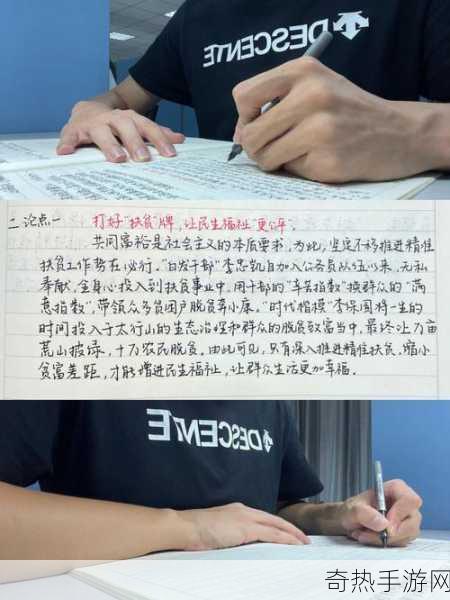 DESCENTE
二、论点一 打好“扶贫”牌，让民生福祉“更公平”。
共同富裕是社会主义的本质要求，为此，坚定不移推进精准
扶贫工作势在必行。“白发干部”李忠凯自加入公务员队伍以来，无私
奉献，全身心投入到扶贫事业中，用干部的“辛苦指数”换群众的“满
意指数”，带领众多贫困户脱贫奔小康。“时代楷模”李保国将一生的
时间投入于太行山的生态治理和群众的脱贫致富当中，最终让万亩
荒山披绿，十万农民脱贫。由此可见，只有深入推进精准扶贫，缩小
贫富差距，才能增进民生福祉，让群众生活更加幸福。
DESCENTE
奇热手游网